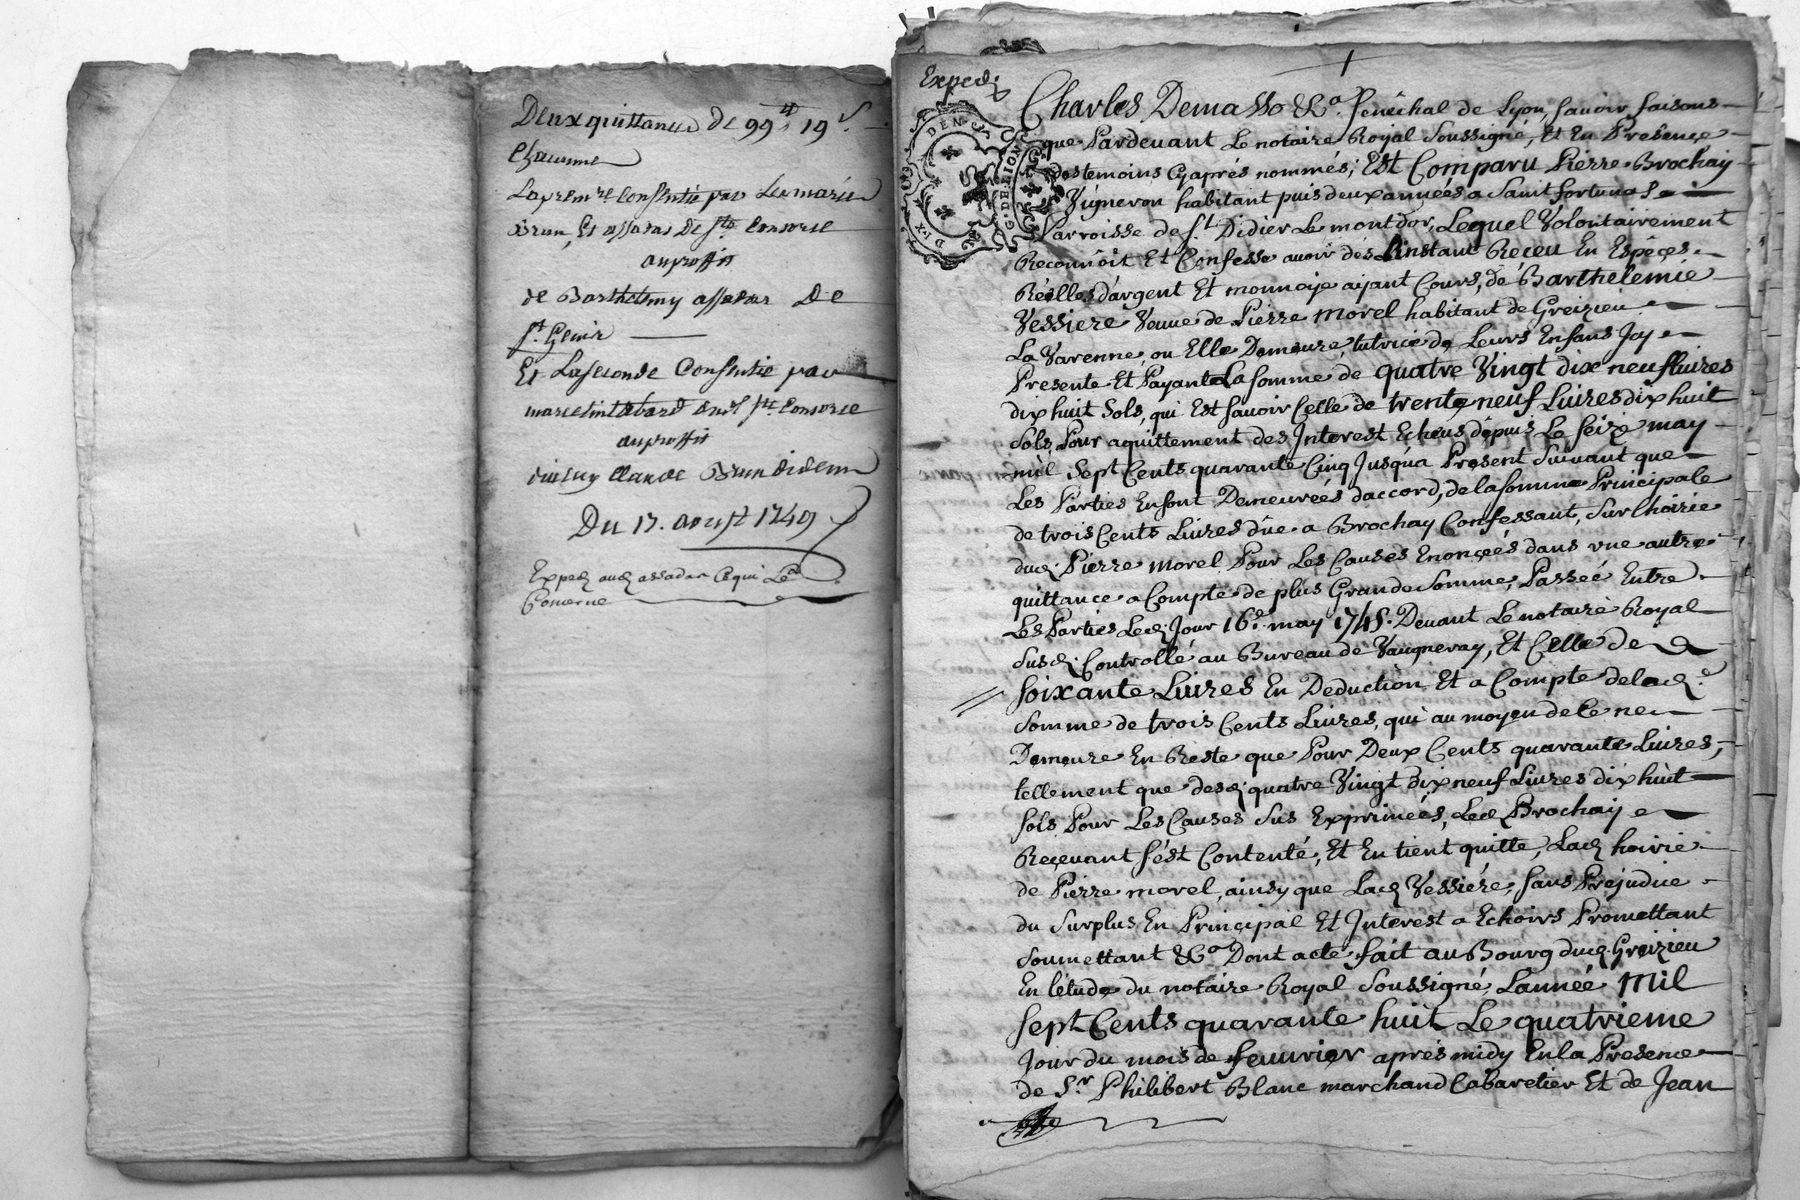 Deux quittances de 99ᵗᵗ 19ˢ
Chacunne
La premʳᵉ Consentie par Lumarie
Brun, Et assadas De Sᵗᵉ Consorse
auproffit
de Barthelemy assadas De
Sᵗ Genis
Et La seconde Consentie par
marcelin tabard dud Sᵗᵉ Consorse
auproffit
Claude Brun
Du 17. aoust 1749
Exped aud assadas Ce qui Le
Concerne
Exped.
DEN
G. DE LION
DIX
Charles Demasso &ᵃ. Senéchal de Lyon, sçavoir faisons
que Pardevant Le notaire Royal Soussigné, Et En Presençe
des temoins Cyaprés nommés, Est Comparu Pierre Brochay
Vigneron habitant puis deux années a Saint fortunat
Parroisse de Sᵗ Didier Le mont dor, Lequel Volontairement
Reconnoit Et Confesse avoir dés Linstant Reçeu En Espéçes
Réelles d'argent Et monnoye ajant Cours, de Barthelemie
Vessiere Veuve de Pierre Morel habitant de Greizieu
La Varenne, ou Elle Demeure, tutrice de Leurs Enfans Jcy
Presente Et Payante La Somme de quatre Vingt dix neuf Livres
dix huit Sols, qui Est savoir Celle de trente neuf Livres dix huit
Sols, Pour aquittement des Interest Echeus depuis Le Seize may
mil Sept Cents quarante Cinq Jusqu'a Present Suivant que
Les Parties En sont Demeurées d'accord, de la somme Principale
de trois Cents Livres düe a Brochay Confessant, Sur L'hoirie
dud. Pierre Morel Pour Les Causes Enonçées dans une autre
quittance a Compte de plus Grande Somme, Passée Entre
Les Parties Led. Jour 16ᵉ. may 1745. Devant Le notaire Royal
Susd. Controllé au Bureau de Vaugneray, Et Celle de
Soixante Livres En Deduction Et a Compte de lad.
Somme de trois Cents Livres, qui au moyen de Ce ne
Demeure En Reste que Pour Deux Cents quarante Livres,
tellement que desd. quatre Vingt Dix neuf Livres dix huit
Sols Pour Les Causes Sus Exprimées, Led. Brochay
Reçevant s'ést Contenté, Et En tient quitte, Lad. hoirie
de Pierre Morel, ainsy que Lad Vessiére, Sans Prejudice
du Surplus En Prinçipal Et Interest a Echoirs Promettant
Soumettant &ᵃ Dont acte fait au Bourg dud. Greizieu
En l'étude du notaire Royal Soussigné, L'année Mil
Sept Cents quarante huit Le quatrieme
Jour du mois de fevvrier aprés midy En la Presence
de Sʳ Philibert Blanc marchand Cabaretier Et de Jean